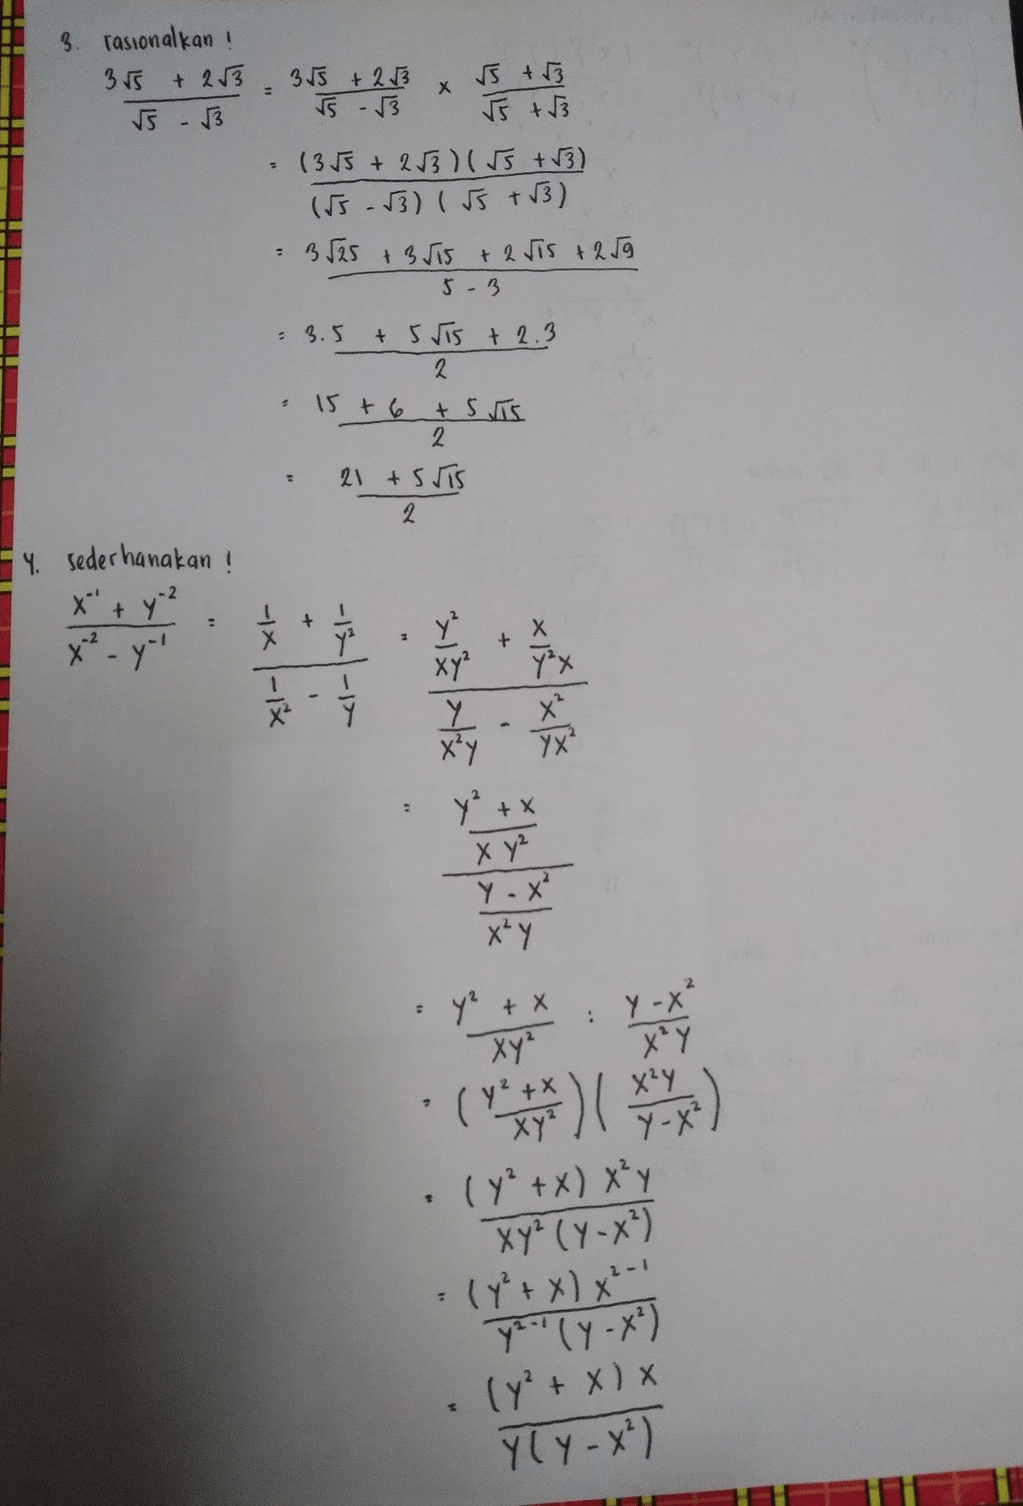 3. rasionalkan !
(3√5 + 2√3)/(√5 - √3) = (3√5 + 2√3)/(√5 - √3) x (√5 + √3)/(√5 + √3)
= ((3√5 + 2√3)(√5 + √3))/((√5 - √3)(√5 + √3))
= (3√25 + 3√15 + 2√15 + 2√9)/(5 - 3)
= (3.5 + 5√15 + 2.3)/2
= (15 + 6 + 5√15)/2
= (21 + 5√15)/2
4. sederhanakan !
(x⁻¹ + y⁻²)/(x⁻² - y⁻¹) = (1/x + 1/y²)/(1/x² - 1/y) = (y²/xy² + x/y²x)/(y/x²y - x²/yx²)
= ((y² + x)/(xy²))/((y - x²)/(x²y))
= (y² + x)/(xy²) : (y - x²)/(x²y)
= ((y² + x)/(xy²))((x²y)/(y - x²))
= ((y² + x) x²y)/(xy² (y - x²))
= ((y² + x) x²⁻¹)/(y²⁻¹ (y - x²))
= ((y² + x) x)/(y(y - x²))